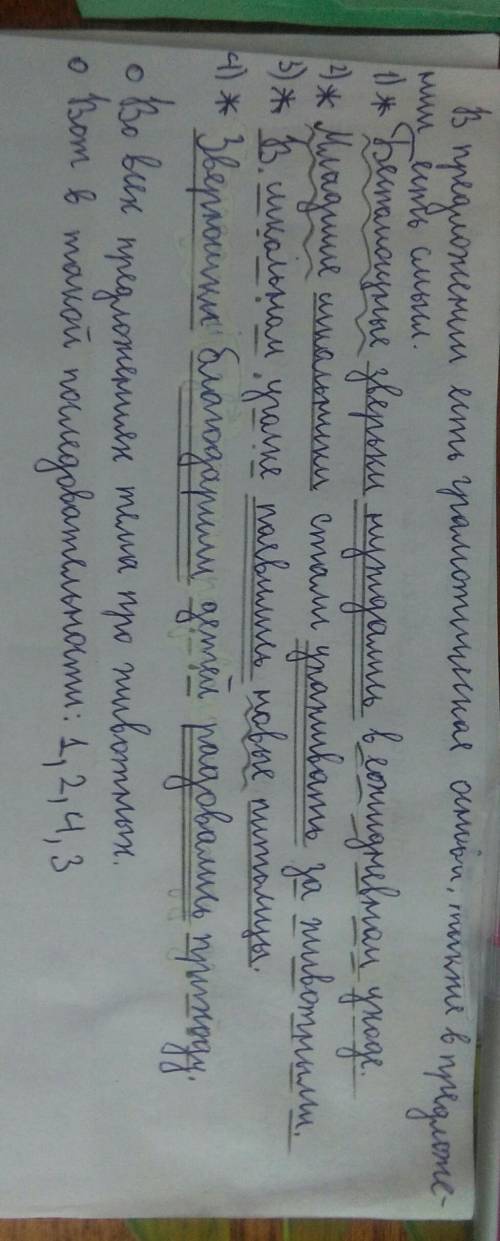 В предложении есть грамотическая основа, также в предложе-
нии есть смысл.
1) * Беспомощные зверьки нуждались в ежидневном уходе.
2) * Младшие школьники стали ухаживать за животными.
3) * В школьном уголке появились новые питомцы.
4) * Зверюшки благодарили детей радовались приходу.
о Во всех предложениях тема про животных.
о Вот в такой последовательности: 1, 2, 4, 3